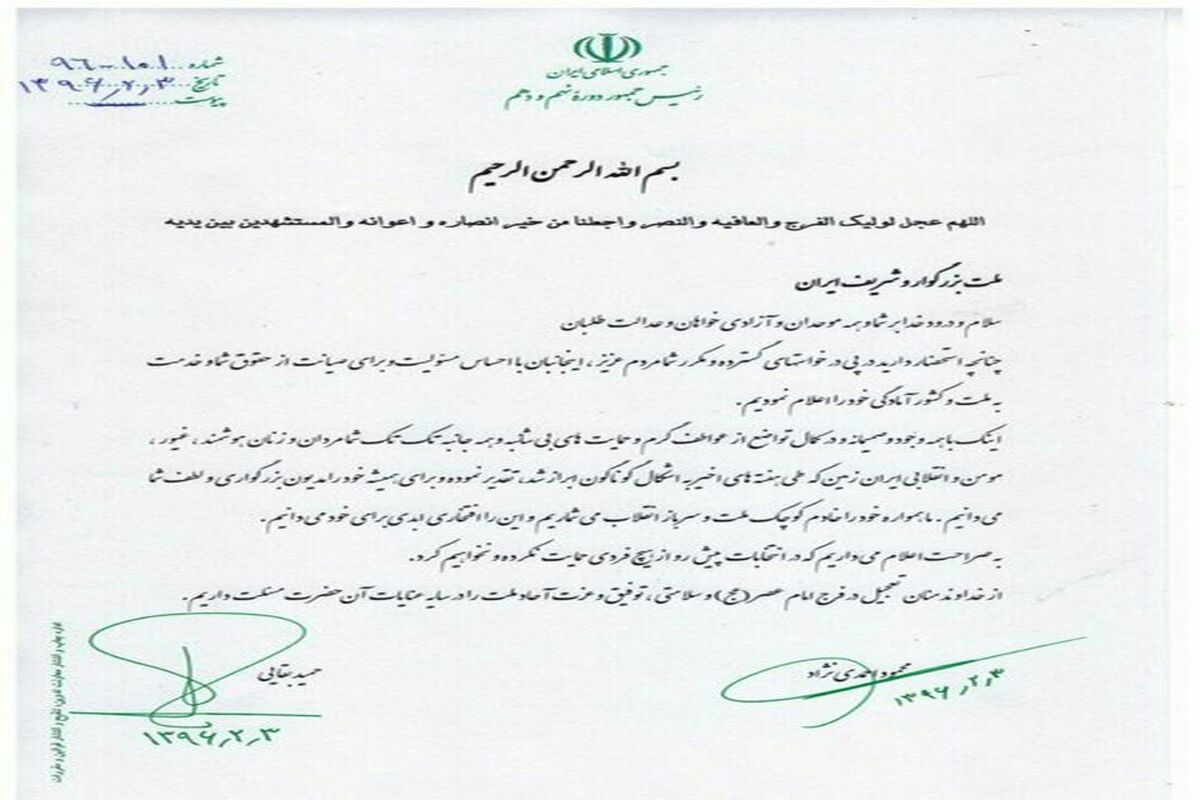 جمهوری اسلامی ایران
رئیس جمهور دوره نهم و دهم
شماره ۹۶۰۰۱۵۱
تاریخ ۱۳۹۶/۲/۳
پیوست
بسم الله الرحمن الرحیم
اللهم عجل لولیک الفرج والعافیه والنصر واجعلنا من خیر انصاره و اعوانه والمستشهدین بین یدیه
ملت بزرگوار و شریف ایران
سلام و درود خدا بر شما و همه موحدان و آزادی خواهان و عدالت طلبان
چنانچه استحضار دارید در پی درخواستهای گسترده و مکرر شما مردم عزیز، اینجانبان با احساس مسئولیت و برای صیانت از حقوق شما و خدمت
به ملت و کشور آمادگی خود را اعلام نمودیم.
اینک با همه وجود و صمیمانه و در کمال تواضع از عواطف گرم و حمایت های بی شائبه و همه جانبه تک تک شما مردان و زنان هوشمند، غیور،
مومن و انقلابی ایران زمین که طی هفته های اخیر به اشکال گوناگون ابراز شد، تقدیر نموده و برای همیشه خود را مدیون بزرگواری و لطف شما
می دانیم. ما همواره خود را خادم کوچک ملت و سرباز انقلاب می شماریم و این را افتخاری ابدی برای خود می دانیم.
به صراحت اعلام می داریم که در انتخابات پیش رو از هیچ فردی حمایت نکرده و نخواهیم کرد.
از خداوند منان تعجیل در فرج امام عصر (عج) و سلامتی، توفیق و عزت آحاد ملت را در سایه عنایات آن حضرت مسئلت داریم.
محمود احمدی نژاد
۱۳۹۶/۲/۳
حمید بقایی
۱۳۹۶/۲/۳